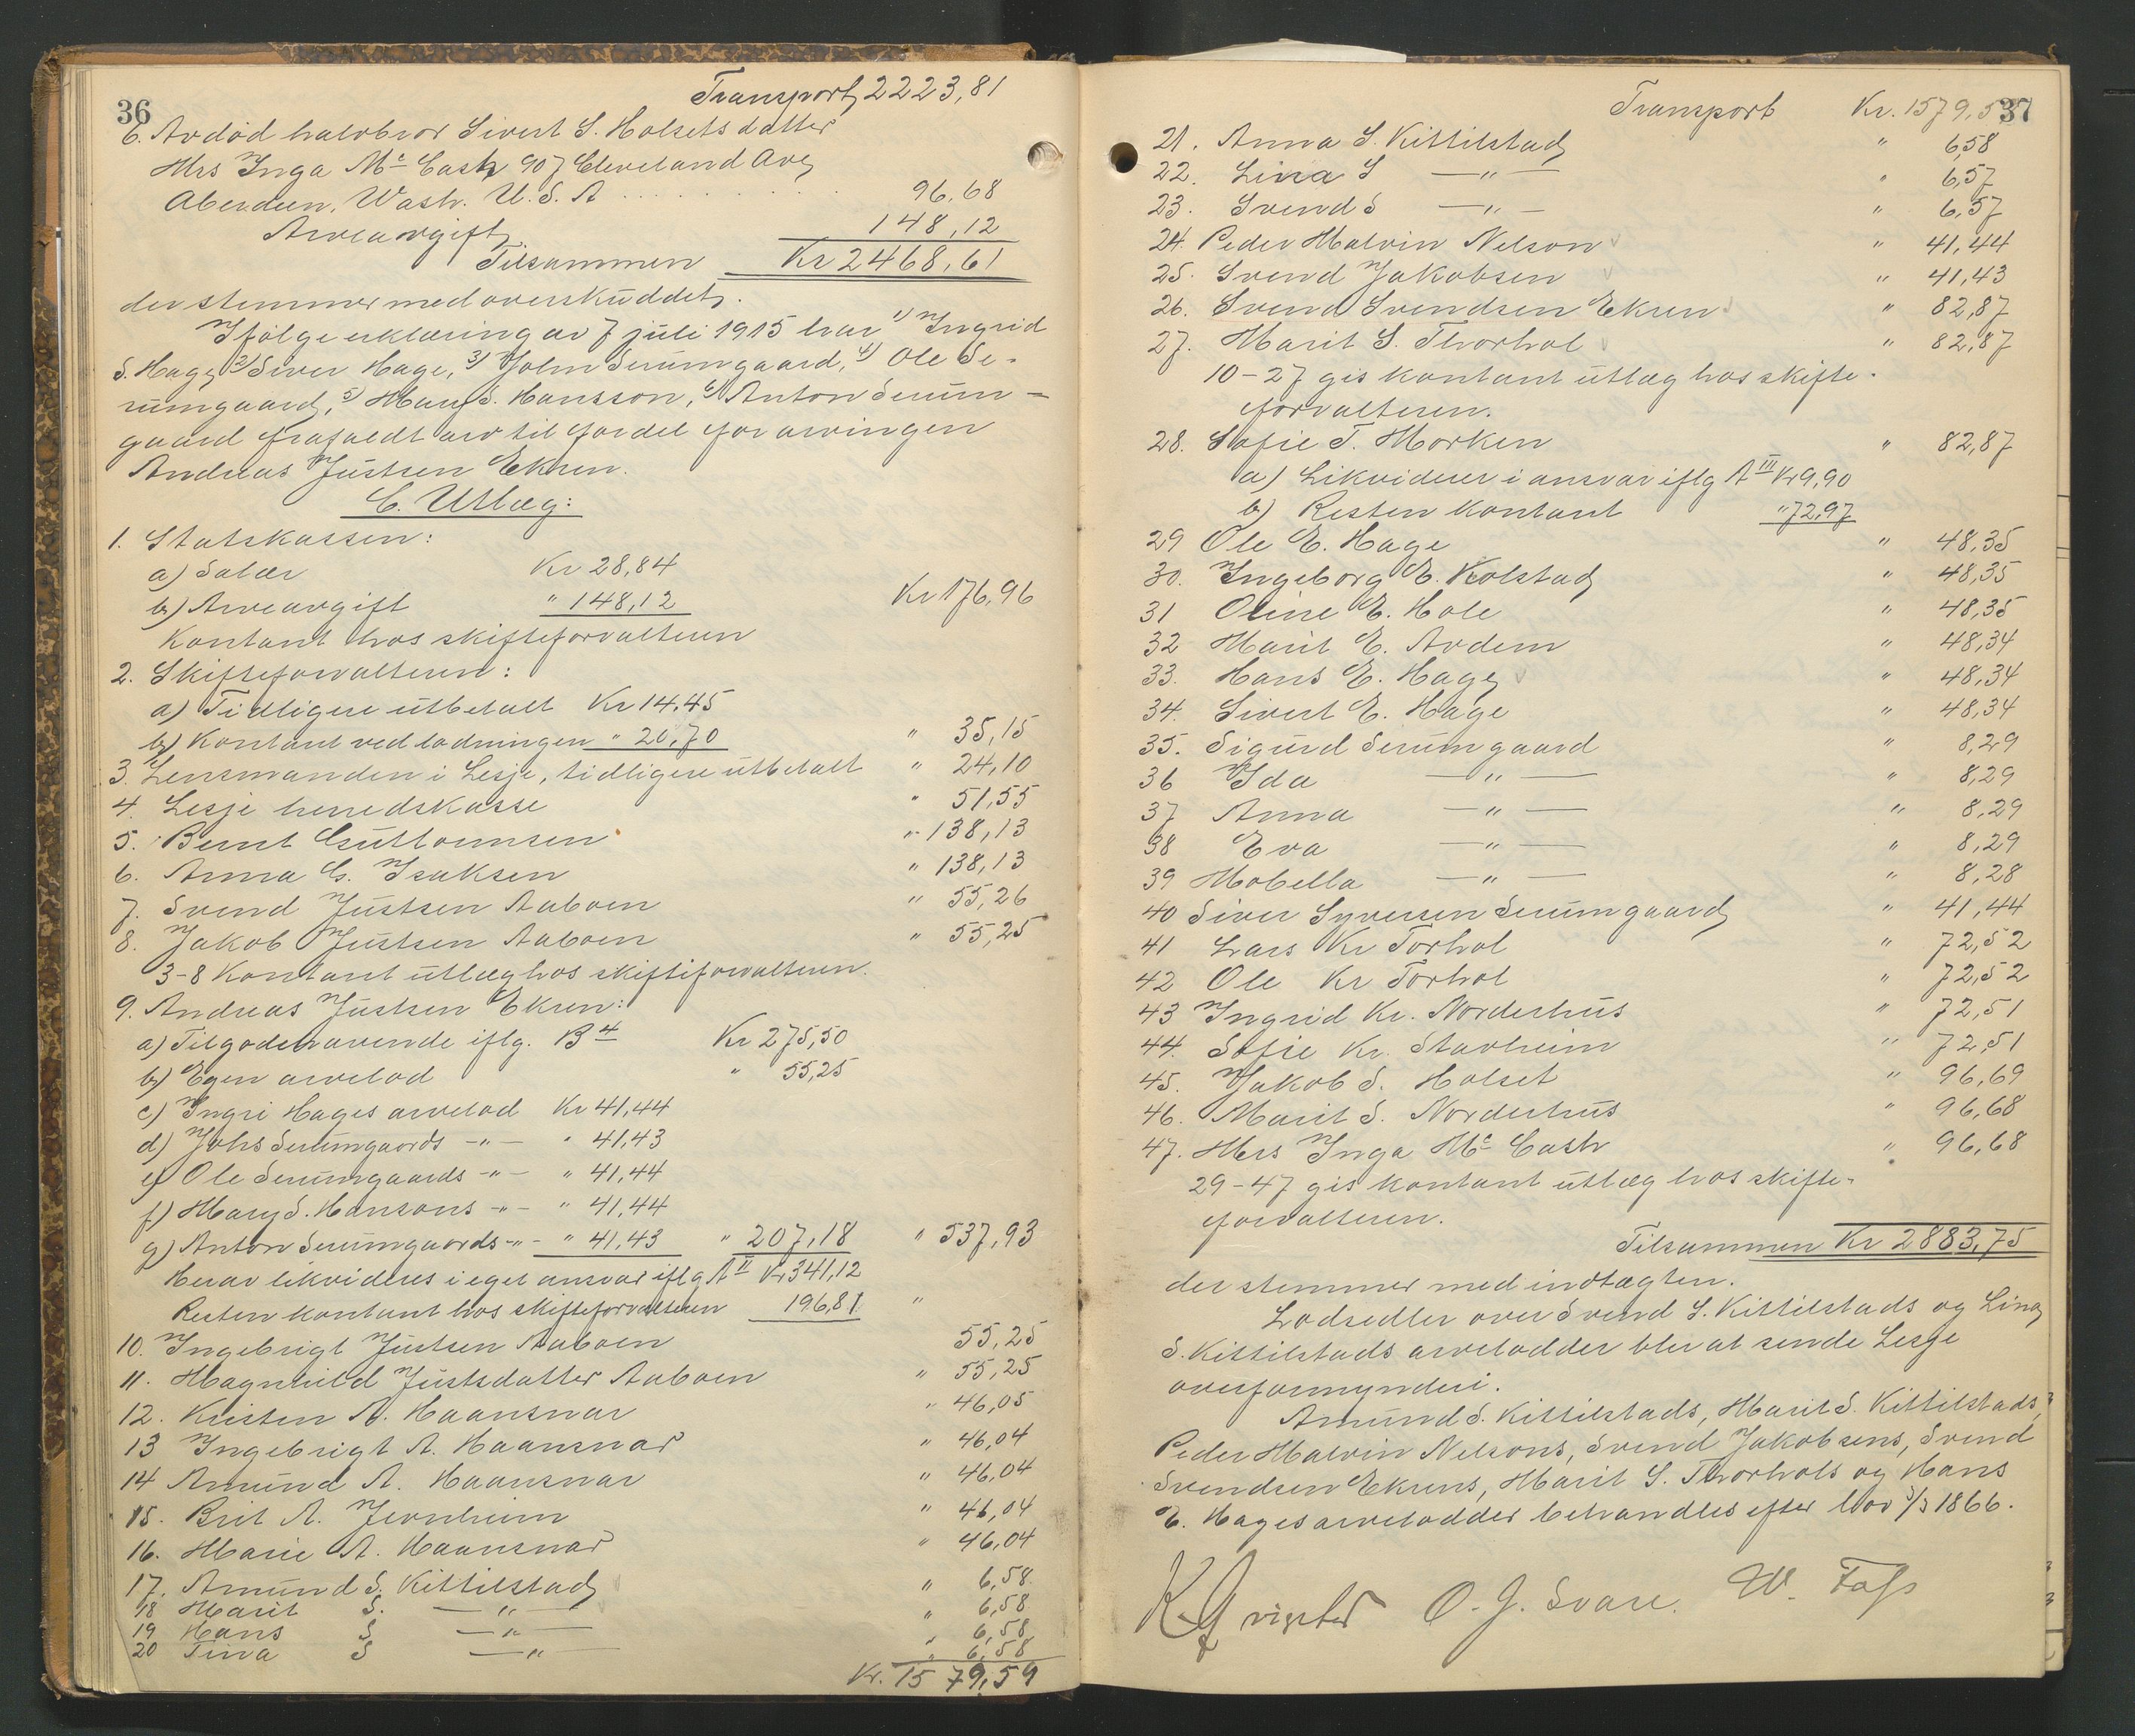 36
Transport 2223,81
6. Avdød halvbror Sivert S. Holsets datter
Mrs Inga Mc Cash 907 Cleveland Ave
Aberdeen, Wash. U.S.A. 96,68
Arveavgift 148,12
Tilsammen Kr 2468,61
der stemmer med overskuddet.
Ifølge erklæring av 7 juli 1915 har 1) Ingrid
S. Hage, 2) Siver Hage, 3) John Serumgaard, 4) Ole Se-
rumgaard, 5) Mary S. Hansson, 6) Anton Serum-
gaard frafaldt arv til fordel for arvingen
Andreas Justsen Ekren.
C. Utlæg:
1. Statskassen:
a) Salær Kr 28,84
b) Arveavgift " 148,12 Kr 176,96
Kontant hos skifteforvalteren
2. Skifteforvalteren:
a) Tidligere utbetalt Kr 14,45
b) Kontant ved lodningen " 20,70 " 35,15
3. Lensmanden i Lesje, tidligere utbetalt " 24,10
4. Lesje herredskasse " 51,55
5. Bernt Guttormsen " 138,13
6. Anna G. Isaksen " 138,13
7. Svend Justsen Aaboen " 55,26
8. Jakob Justsen Aaboen " 55,25
3-8 Kontant utlæg hos skifteforvalteren.
9. Andreas Justsen Ekren:
a) Tilgodehavende iflg. B 4 Kr 275,50
b) Egen arvelod " 55,25
c) Ingri Hages arvelod Kr 41,44
d) Johs Serumgaards -"- " 41,43
e) Ole Serumgaards -"- " 41,44
f) Mary S. Hansons -"- " 41,44
g) Anton Serumgaards -"- " 41,43 " 207,18 " 537,93
Herav likvideres i eget ansvar iflg A II Kr 341,12
Resten kontant hos skifteforvalteren 196,81 "
10. Ingebrigt Justsen Aaboen 55,25
11. Magnhild Justsdatter Aaboen " 55,25
12. Kristen A. Haansnar " 46,05
13 Ingebrigt A. Haansnar " 46,04
14 Amund A. Haansnar " 46,04
15. Brit A. Jernheim " 46,04
16. Marie A. Haansnar " 46,04
17. Amund S. Kittilstad " 6,58
18 Marit S. -"- " 6,58
19 Hans S. -"- " 6,58
20 Tina S -"- " 6,58
Kr. 1579,59
37
Transport Kr. 1579,5
21. Anna S. Kittilstad " 6,58
22. Lina S -"- " 6,57
23. Svend S -"- " 6,57
24. Peder Malvin Nelson " 41,44
25. Svend Jakobsen " 41,43
26. Svend Svendsen Ekren " 82,87
27. Marit S. Thorhol " 82,87
10-27 gis kontant utlæg hos skifte-
forvalteren.
28. Sofie T. Morken " 82,87
a) Likviderer i ansvar iflg A III Kr 9,90
b) Resten Kontant " 72,97
29 Ole E. Hage " 48,35
30. Ingeborg E. Kolstad " 48,35
31 Oline E. Hole " 48,35
32 Marit E. Avdem " 48,34
33. Hans E. Hage " 48,34
34. Sivert E. Hage " 48,34
35. Sigurd Serumgaard " 8,29
36 Ida -"- " 8,29
37 Anna -"- " 8,29
38 Eva -"- " 8,29
39 Mobella -"- " 8,28
40 Siver Syversen Serumgaard " 41,44
41 Lars Kr Torhol " 72,52
42 Ole Kr Torhol " 72,52
43 Ingrid Kr. Norderhus " 72,51
44. Sofie Kr. Stavheim " 72,51
45. Jakob S. Holset " 96,69
46. Marit S. Norderhus " 96,68
47. Mrs Inga Mc Cash " 96,68
29-47 gis kontant utlæg hos skifte-
forvalteren.
Tilsammen Kr 2883,75
der stemmer med indtægten.
Lodsedler over Svend S. Kittilstads og Lina
S. Kittilstads arvelodder blir at sende Lesje
overformynderi.
Amund S. Kittilstads, Marit S. Kittilstads,
Peder Malvin Nelsons, Svend Jakobsens, Svend
Svendsen Ekrens, Marit S. Thorhols og Hans
E. Hages arvelodder behandles efter lov 3/3 1866.
O. J. Svare. W. Fass